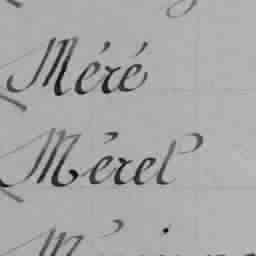 Méré
Mérel